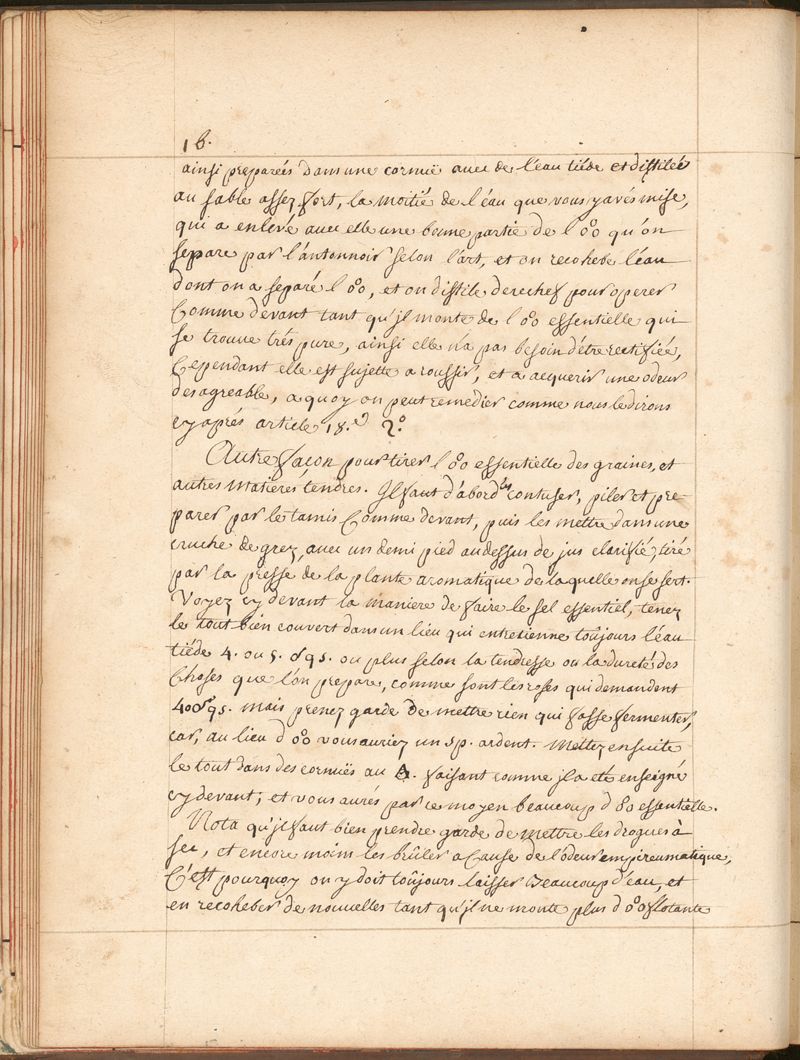 16.
ainsi preparées dans une cornuë avec de l'eau tiéde et distilée
au sable assez fort, la moitié de l'éau que vous y avés mise,
qui a enlevé avec elle une bonne partie de l'o°o qu'on
separe par l'ántonnoir selon l'art, et on recohebe l'éau
dont on a separé l'o°o, et on distile derechef pour operer
Comme devant tant qu'jl monte de l'o°o essentielle qui
se trouve trés pure, ainsi elle n'a pas besoin d'étre rectifiée,
Cependant elle est sujette a roussir, et a acquerir une odeur
desagreable, a quoy on peut remedier comme nous le dirons
cy aprés article 18.e 2.°
Autre façon pour tirer l'o°o essentielle des graines, et
autres matieres tendres. Jl faut d'abord les contuser, piler et pre-
parer par le tamis Comme devant, puis les mettre dans une
cruche de grez, avec un demi pied au dessus de jus clarifié, tiré
par la presse de la plante aromatique de laquelle on se sert.
Voyez cy devant la maniere de faire le sel essentiel, tenez
le tout bien couvert dans un lieu qui entretienne toûjours l'éau
tiéde 4. ou 5. ♂9s. ou plus selon la tendresse ou la dureté des
Choses que l'ón prepare, comme sont les roses qui demandent
40♂9s. mais prenez garde de mettre rien qui fasse fermenter,
car, au lieu d'o°o vous auriez un sp. ardent. Mettez ensuite
le tout dans des cornuës au 🜁. faisant comme jl a eté enseigné
cy devant, et vous aurés par ce moyen beaucoup d'o°o essentielle.
Nota qu'jl faut bien prendre garde de mettre les drogues à
sec, et encore moins les brûler a Cause de l'ódeur empireumatique,
C'est pourquoy on y doit toûjours laisser Beaucoup d'eau, et
en recoheber de nouvelles tant qu'jl ne monte plus d'o°o flotante